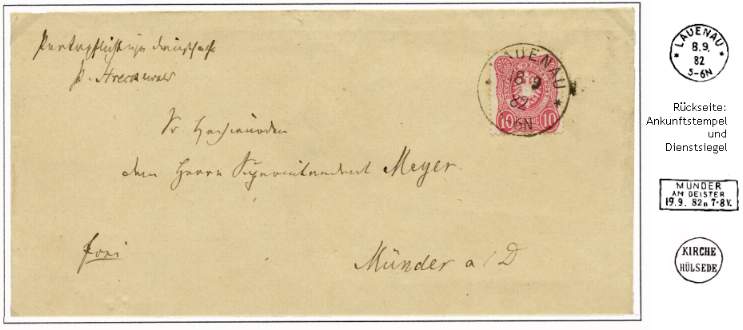 Portopflichtige Dienstsache
Sr Hochwürden
dem Herrn Superintendent Meyer.
frei
Münder a/D
LAUENAU
18 9
82
6N
10 10
* LAUENAU *
8.9.
82
5-6N
Rückseite:
Ankunftstempel
und
Dienstsiegel
MÜNDER
AM DEISTER
19.9. 82 7-8V.
KIRCHE
HÜLSEDE